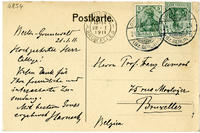 4854
Postkarte.
Berlin-Grunewald
28.1.11.
Hochgeehrter Herr
College!
Vielen Dank für
Ihre freundliche und
interessante Zu-
sendung.
Mit bestem Gruss
ergebenst
Herrn Prof. Franz Cumont
75 rue Montoyer
Bruxelles
Belgien
1911